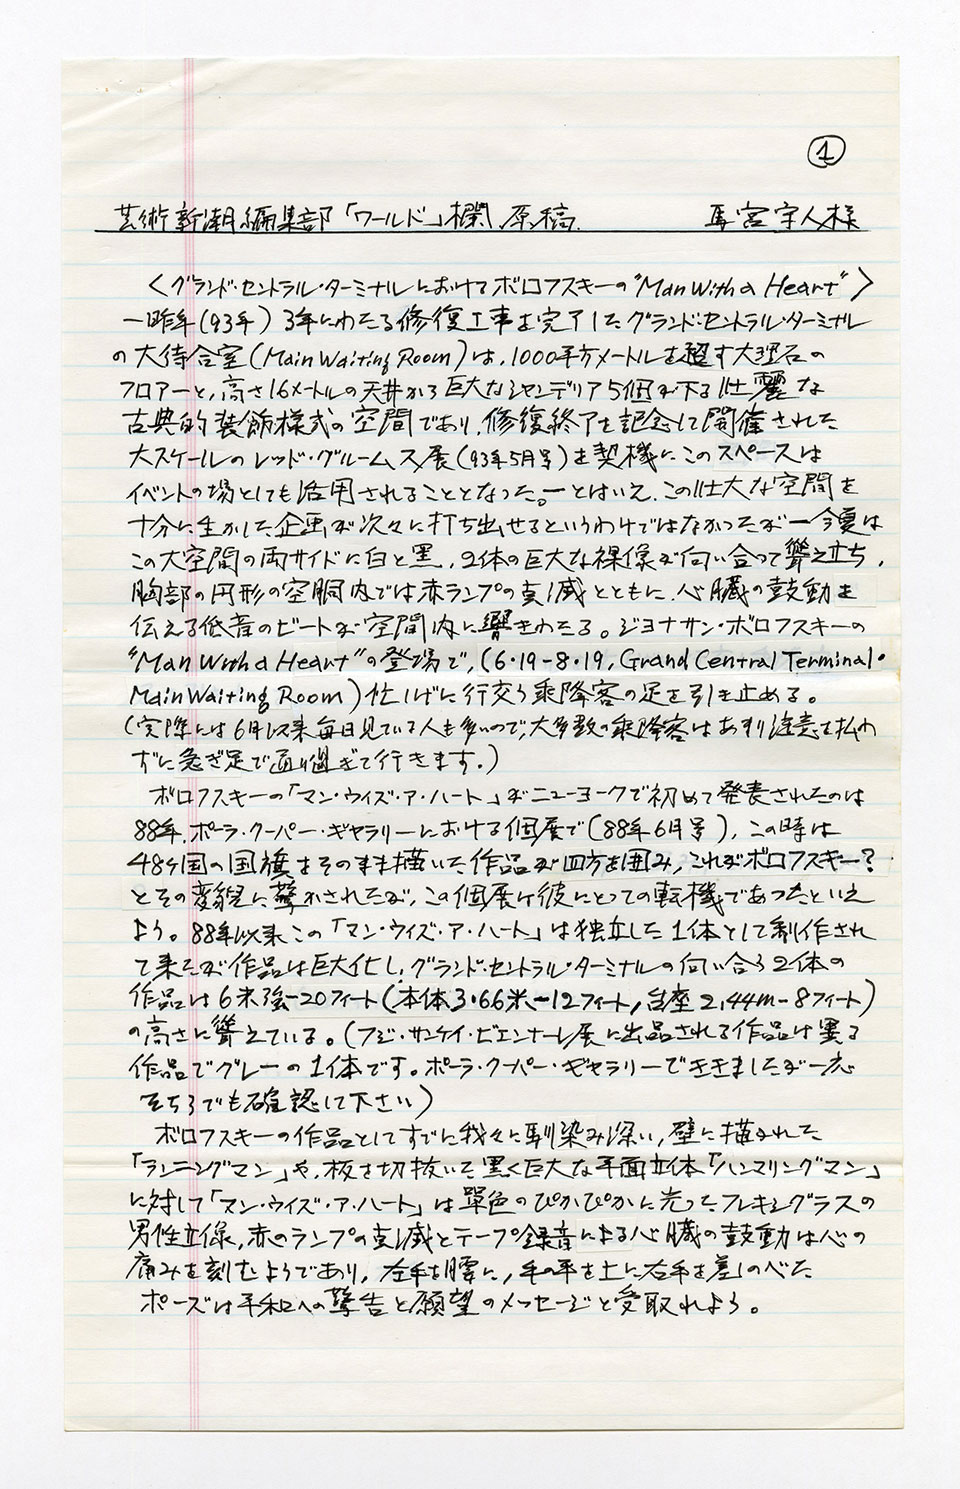 ①
芸術新潮編集部「ワールド」欄 原稿. 馬宮宇人様
〈グランド・セントラル・ターミナルにおけるボロフスキーの"Man With a Heart"〉
一昨年(93年) 3年にわたる修復工事を完了したグランド・セントラル・ターミナル
の大待合室(Main Waiting Room)は、1000平方メートルを超す大理石の
フロアーと、高さ16メートルの天井から巨大なシャンデリア5個が下る壮麗な
古典的装飾様式の空間であり、修復終了を記念して開催された
大スケールのレッド・グルームス展(93年5月号)を契機にこのスペースは
イベントの場としても活用されることとなった。一とはいえ、この壮大な空間を
十分に生かした企画が次々に打ち出せるというわけではなかったが一今夏は
この大空間の両サイドに白と黒、2体の巨大な裸像が向い合って聳え立ち、
胸部の円形の空胴内では赤ランプの点滅とともに、心臓の鼓動を
伝える低音のビートが空間内に響きわたる。ジョナサン・ボロフスキーの
"Man With a Heart"の登場で、(6・19-8・19, Grand Central Terminal・
Main Waiting Room) 忙しげに行交う乗降客の足を引き止める。
(実際には6月以来毎日見ている人も多いので、大多数の乗降客はあまり注意を払わ
ずに急ぎ足で通り過ぎて行きます。)
ボロフスキーの「マン・ウィズ・ア・ハート」がニューヨークで初めて発表されたのは
88年、ポーラ・クーパー・ギャラリーにおける個展で(88年6月号)、この時は
48ヶ国の国旗をそのまま描いた作品が四方を囲み、これがボロフスキー?
とその変貌に驚かされたが、この個展は彼にとっての転機であったといえ
よう。88年以来この「マン・ウィズ・ア・ハート」は独立した1体として制作され
て来たが作品は巨大化し、グランド・セントラル・ターミナルの向い合う2体の
作品は6米強-20フィート(本体3.66米-12フィート, 台座2.44m-8フィート)
の高さに聳えている。(フジ・サンケイ・ビエンナーレ展に出品される作品は異る
作品でグレーの1体です。ポーラ・クーパー・ギャラリーでききましたが一応
そちらでも確認して下さい)
ボロフスキーの作品としてすでに我々に馴染み深い、壁に描かれた
「ランニングマン」や、板を切抜いた黒く巨大な平面立体「ハンマリングマン」
に対して「マン・ウィズ・ア・ハート」は単色のぴかぴかに光ったプレキシグラスの
男性立像、赤のランプの点滅とテープ録音による心臓の鼓動は心の
痛みを刻むようであり、左手を腰に、手の平を上に右手を差しのべた
ポーズは平和への警告と願望のメッセージと受取れよう。